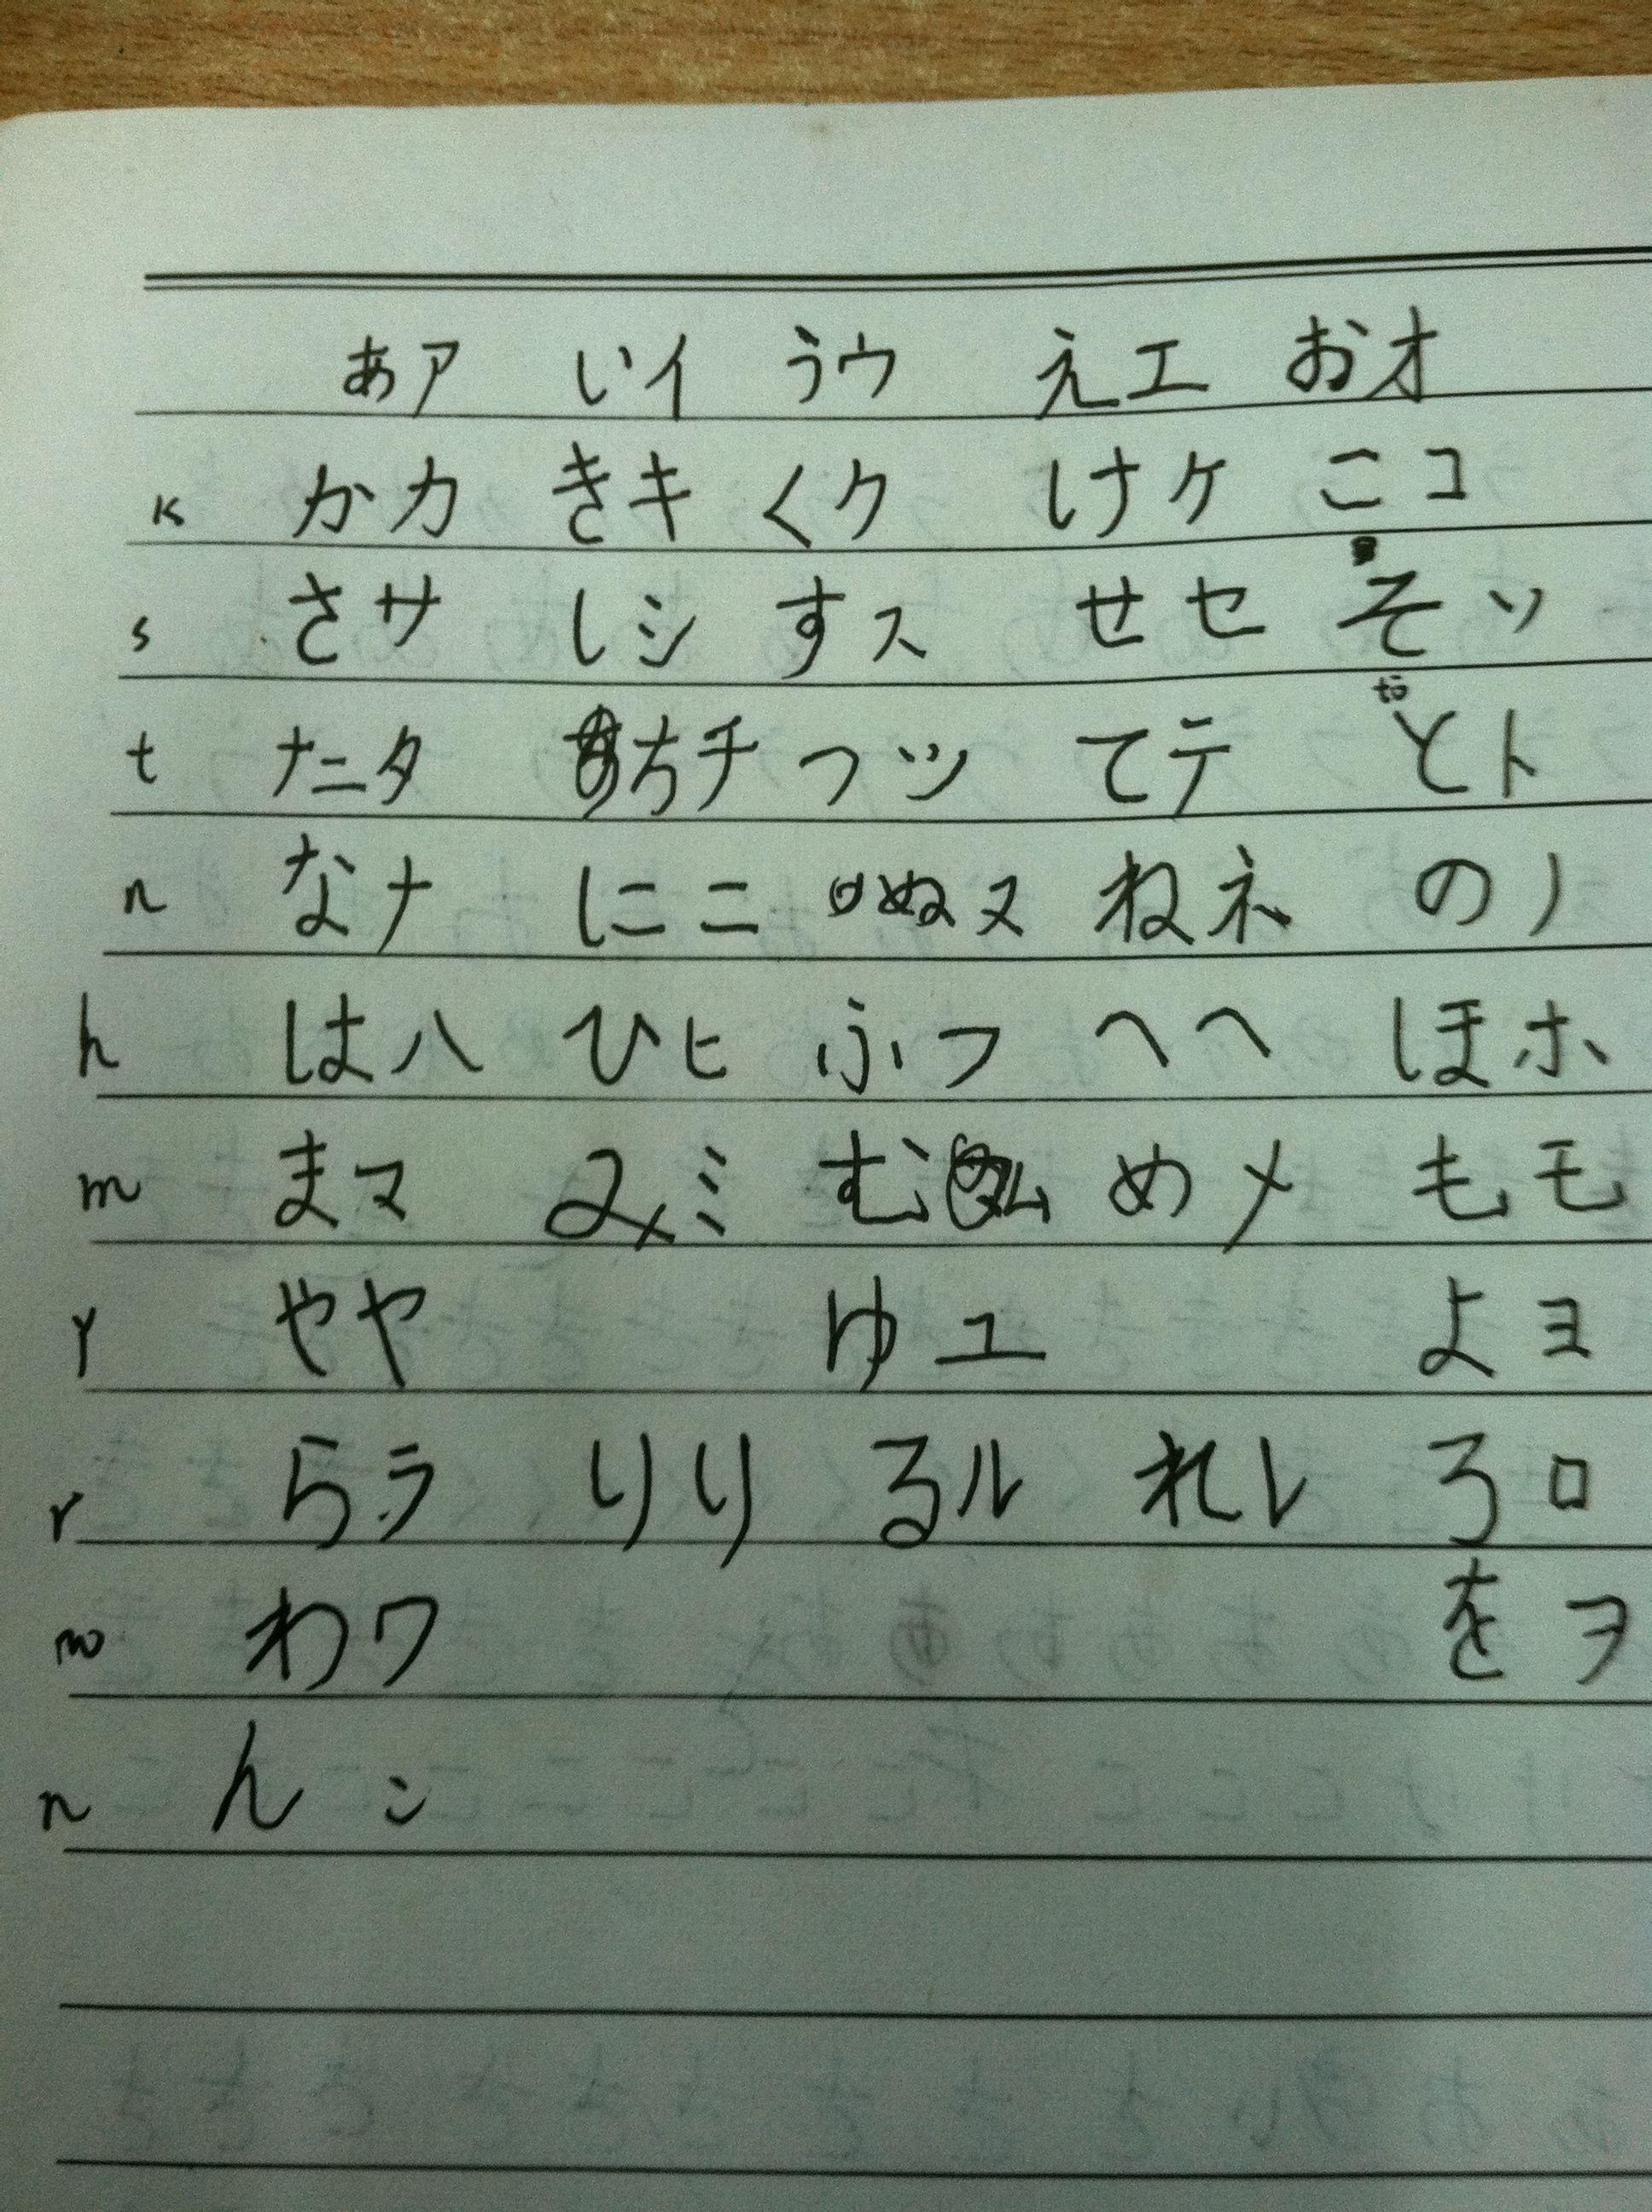 あア いイ うウ えエ おオ
k かカ きキ くク けケ こコ
s さサ しシ すス せセ そソ
t たタ ちチ つツ てテ とト
n なナ にニ ぬヌ ねネ のノ
h はハ ひヒ ふフ へヘ ほホ
m まマ みミ むム めメ もモ
y やヤ ゆユ よヨ
r らラ りリ るル れレ ろロ
w わワ をヲ
n んン